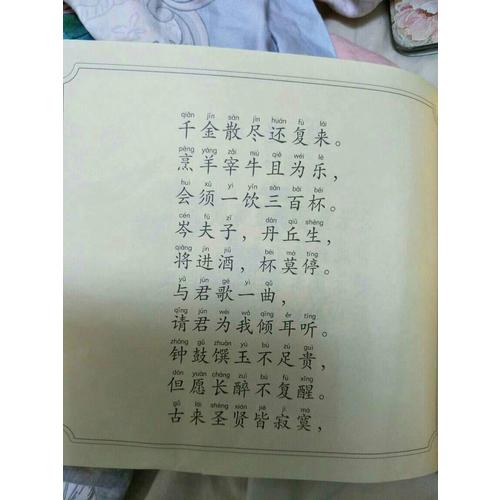 qiān jīn sàn jìn huán fù lái
千金散尽还复来。
pēng yáng zǎi niú qiě wéi lè
烹羊宰牛且为乐，
huì xū yì yǐn sān bǎi bēi
会须一饮三百杯。
cén fū zǐ dān qiū shēng
岑夫子，丹丘生，
qiāng jìn jiǔ bēi mò tíng
将进酒，杯莫停。
yǔ jūn gē yì qǔ
与君歌一曲，
qǐng jūn wèi wǒ qīng ěr tīng
请君为我倾耳听。
zhōng gǔ zhuàn yù bù zú guì
钟鼓馔玉不足贵，
dàn yuàn cháng zuì bú fù xǐng
但愿长醉不复醒。
gǔ lái shèng xián jiē jì mò
古来圣贤皆寂寞，